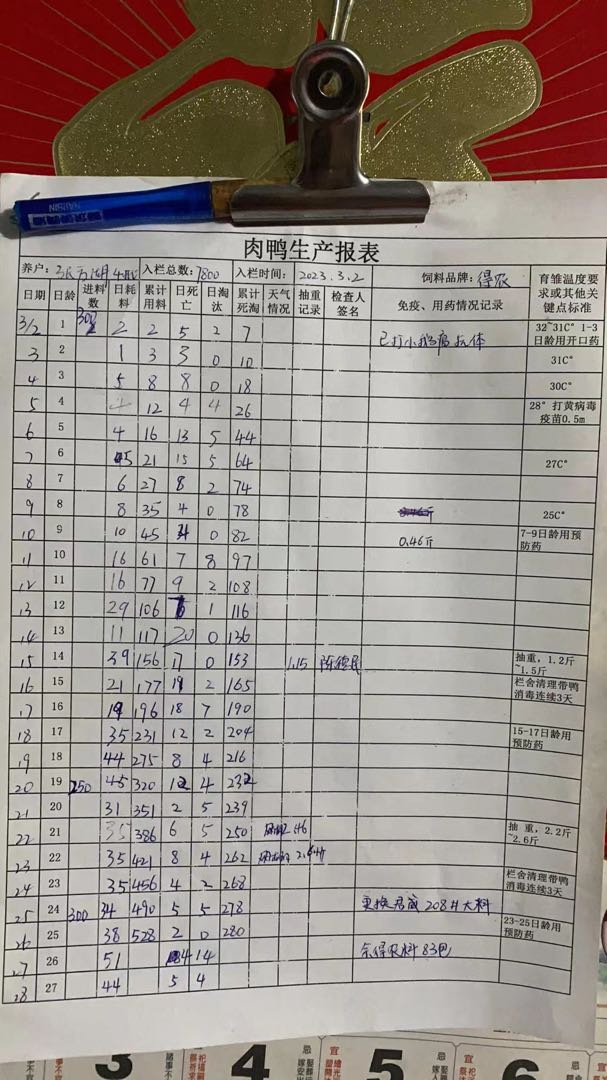 肉鸭生产报表
养户: 入栏总数: 7800 入栏时间: 2023.3.2 饲料品牌: 得农 育雏温度要求或其他关键点标准
日期 日龄 进料数 日耗料 累计用料 日死亡 日淘汰 累计死淘 天气情况 抽重记录 检查人签名 免疫、用药情况记录
3/2 1 300 2 2 5 2 7 32~31C° 1-3日龄用开口药
3 2 1 3 3 0 10 31C°
4 3 5 8 8 0 18 30C°
5 4 12 4 4 26 28° 打黄病毒疫苗0.5m
6 5 4 16 13 5 44
7 6 5 21 15 5 64 27C°
8 7 6 27 8 2 74
9 8 8 35 4 0 78 25C°
10 9 10 45 4 0 82 0.46斤 7-9日龄用预防药
11 10 16 61 7 8 97
12 11 16 77 9 2 108
13 12 29 106 1 116
14 13 11 117 20 0 136
15 14 39 156 17 0 153 1.15 抽重，1.2斤~1.5斤
16 15 21 177 2 165 栏舍清理带鸭消毒连续3天
17 16 19 196 18 7 190
18 17 35 231 12 2 204 15-17日龄用预防药
19 18 44 275 8 4 216
20 19 250 45 320 12 4 232
21 20 31 351 2 5 239
22 21 35 386 6 5 250 抽 重，2.2斤~2.6斤
23 22 35 421 8 4 262
24 23 35 456 4 2 268 栏舍清理带鸭消毒连续3天
25 24 300 34 490 5 5 278 更换 208 大料
26 25 38 528 2 0 280 23-25日龄用预防药
27 26 51 14 余得农料83包
28 27 44 5 4
3 4 5 6